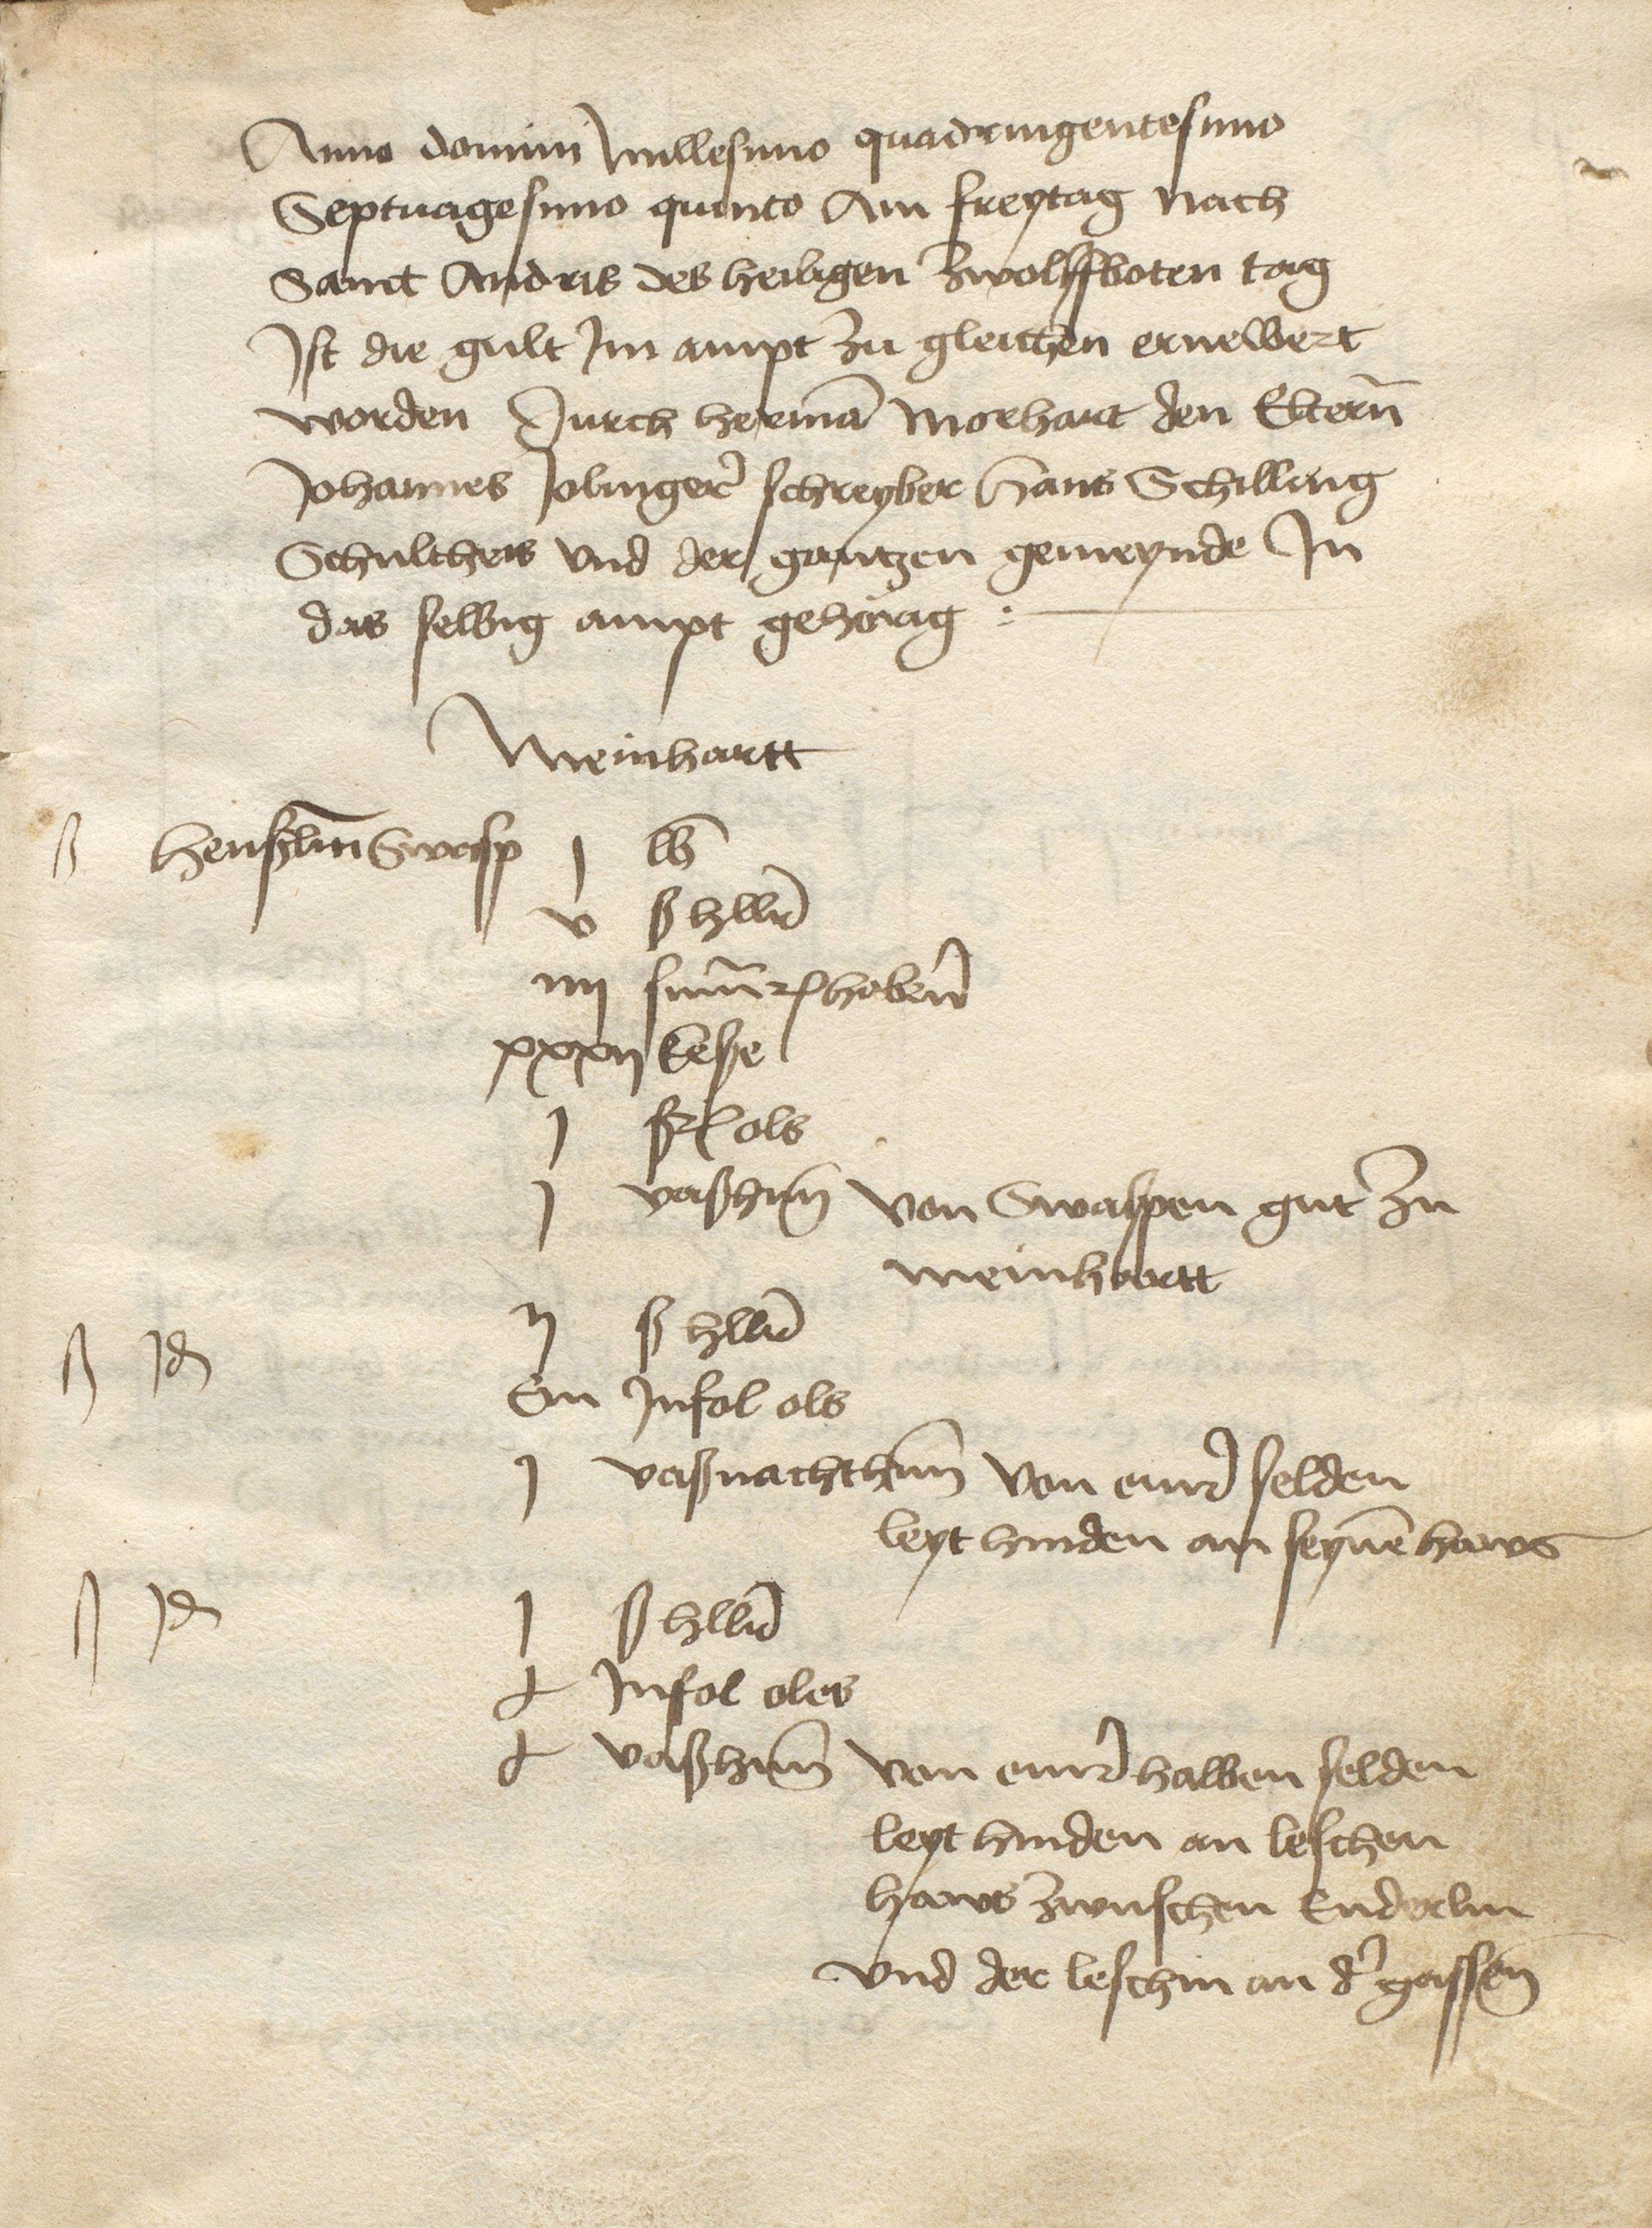 Anno domini Millesimo quadringentesimo
Septuagesimo quinto Am freytag nach
Sanct Andris des heiligen zwolffboten tag
Ist die gult Im ampt zu gleichen ernewert
worden Durch herma̅ Morhart den Elter̅n
Johannes Jolinger schreyber Hans Schilling
Schultheis vnd der gantzen gemeynde In
das selbig ampt gehörig :
Meinhartt
ß henßlin Swasp j lb
v ß hllr
iiij sum̅r habern
xxxij keße
j ols
j vaßhun von Swaspen gut zu
meinhartt
ij ß hllr
ß Id
Ein Jnsol ols
j vaßnachthun von einer selden
leyt hinden an seyne̅ haws
ß Id j ß hllr
Jnsol oles
vaßhun von einer halben selden
leyt hinden an leschen
haws zwuschen Enderlin
vnd der leschin an der gassen